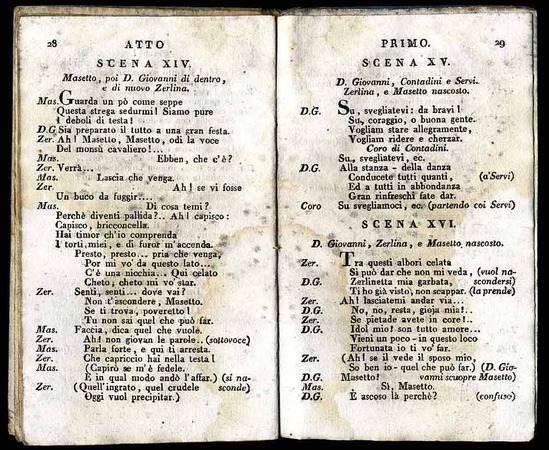 28 ATTO
SCENA XIV.
Masetto, poi D. Giovanni di dentro,
e di nuovo Zerlina.
Mas. Guarda un pò come seppe
Questa strega sedurmi! Siamo pure
I deboli di testa!
D.G. Sia preparato il tutto a una gran festa.
Zer. Ah! Masetto, Masetto, odi la voce
Del monsù cavaliero!...
Mas. Ebben, che c'è?
Zer. Verrà...
Mas. Lascia che venga.
Zer. Ah! se vi fosse
Un buco da fuggir....
Mas. Di cosa temi?
Perchè diventi pallida?.. Ah! capisco:
Capisco, bricconcella.
Hai timor ch'io comprenda
I torti miei, e di furor m'accenda.
Presto, presto... pria che venga,
Por mi vo' da questo lato...
C'è una nicchia... Qui celato
Cheto, cheto mi vo' star.
Zer. Senti, senti... dove vai?
Non t'ascondere, Masetto.
Se ti trova, poveretto!
Tu non sai quel che può far.
Mas. Faccia, dica quel che vuole.
Zer. Ah! non giovan le parole.. (sottovoce)
Mas. Parla forte, e qui t'arresta.
Zer. Che capriccio hai nella testa!
Mas. (Capirò se m'è fedele.
E in qual modo andò l'affar.) (si na-
Zer. (Quell'ingrato, quel crudele sconde)
Oggi vuol precipitar.)
PRIMO. 29
SCENA XV.
D. Giovanni, Contadini e Servi.
Zerlina, e Masetto nascosto.
D.G. Su, svegliatevi: da bravi!
Su, coraggio, o buona gente.
Vogliam stare allegramente,
Vogliam ridere e cherzar.
Coro di Contadini.
Su, svegliatevi, ec.
D.G. Alla stanza - della danza
Conducete tutti quanti, (a'Servi)
Ed a tutti in abbondanza
Gran rinfreschi fate dar.
Coro Su svegliamoci, ec. (partendo coi Servi)
SCENA XVI.
D. Giovanni, Zerlina, e Masetto nascosto.
Zer. Tra questi albori celata
Si può dar che non mi veda, (vuol na-
D.G. Zerlinetta mia garbata, scondersi)
Ti ho già visto, non scappar. (la prende)
Zer. Ah! lasciatemi andar via...
D.G. No, no, resta, gioja mia!..
Zer. Se pietade avete in core!..
D.G. Idol mio! son tutto amore...
Vieni un poco - in questo loco
Fortunata io ti vo' far.
Zer. (Ah! se il vede il sposo mio,
So ben io - quel che può far.) (D. Gio-
D.G. Masetto! vanni scuopre Masetto)
Mas. Sì, Masetto.
D.G. È ascoso là perchè? (confuso)